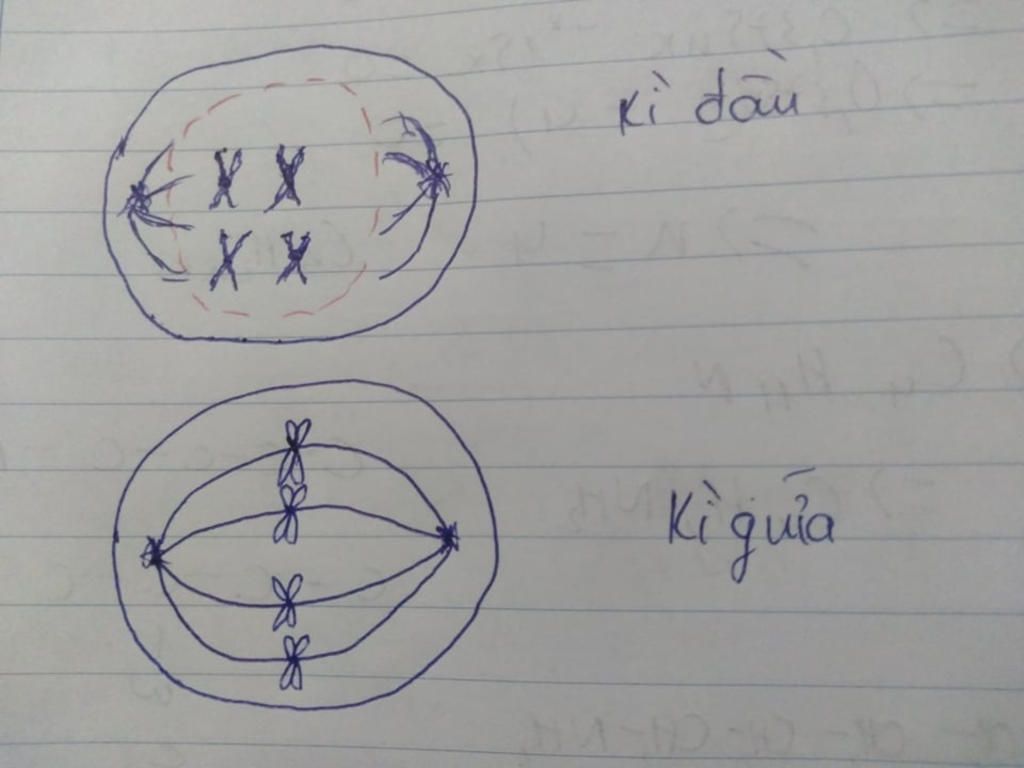 Kì đầu
Kì giữa